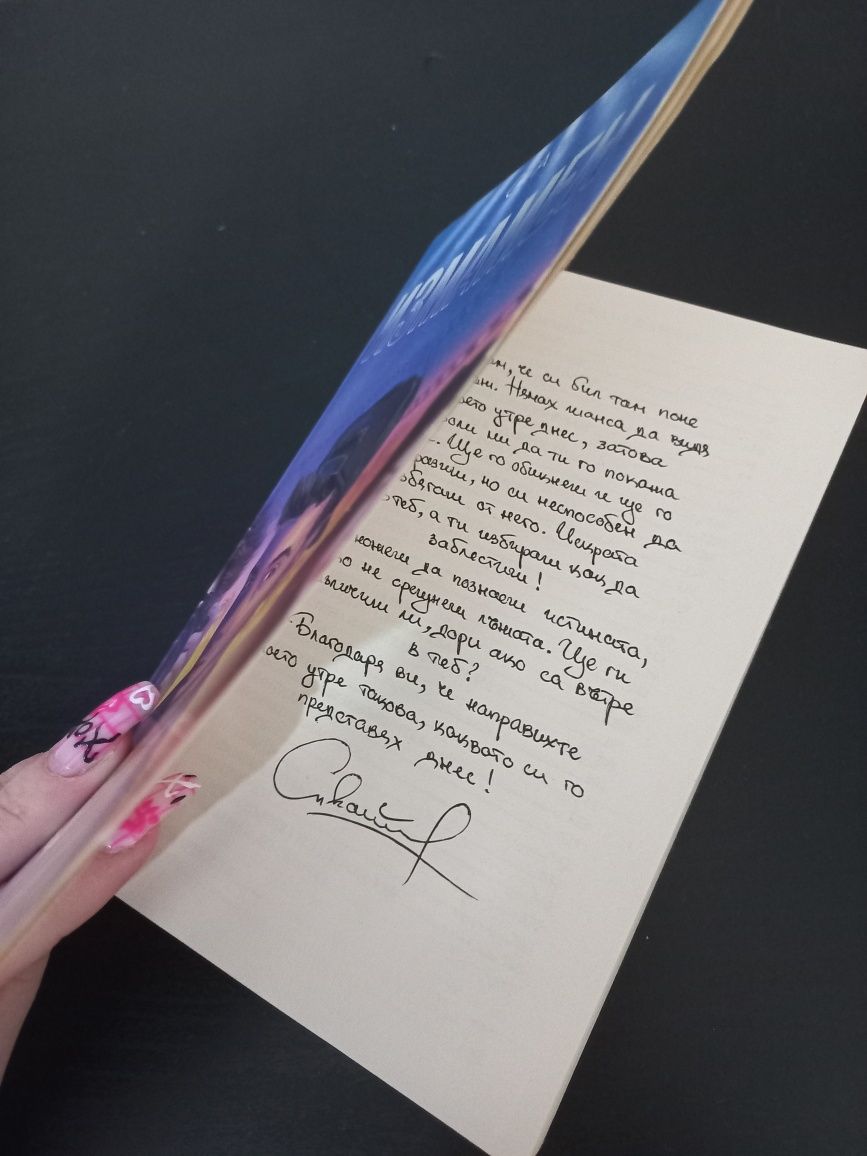 че си бил там поне
Нямах шанса да видя
утре днес, затова
ми да ти го покажа
Ще го обикнеш и ще го
но си неспособен да
от него. Искрата
теб, а ти избираш как да
заблестиш!
да познаеш истината,
не срещнеш лъжата. Ще ги
ли, дори ако са вътре
в теб?
Благодаря ви, че направихте
утре такова, каквото си го
представях днес!